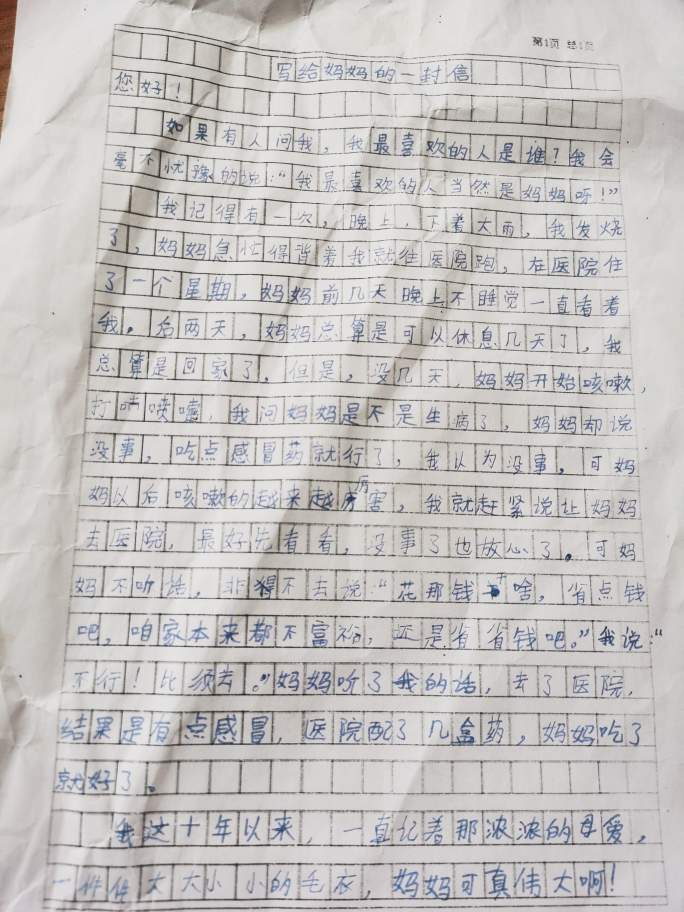 第1页 总1页
写给妈妈的一封信
您好！
如果有人问我，我最喜欢的人是谁？我会
毫不忧豫的说：“我最喜欢的人当然是妈妈呀！”
我记得有一次，晚上，下着大雨，我发烧
了，妈妈急忙得背着我就往医院跑，在医院住
了一个星期，妈妈前几天晚上不睡觉一直看着
我。后两天，妈妈总算是可以休息几天了，我
总算是回家了。但是，没几天，妈妈开始咳嗽，
打喷嚏，我问妈妈是不是生病了，妈妈却说
没事，吃点感冒药就行了，我以为没事。可妈
妈以后咳嗽的越来越厉害，我就赶紧说让妈妈
去医院，最好先看看，没事了也放心了。可妈
妈不听话，非得不去说“花那钱干啥，省点钱
吧，咱家本来都不富裕，还是省省钱吧。”我说：“
不行！比须去。”妈妈听了我的话，去了医院，
结果是有点感冒，医院配了几盒药，妈妈吃了
就好了。
我这十年以来，一直记着那浓浓的母爱，
一件件大大小小的毛衣，妈妈可真伟大啊！